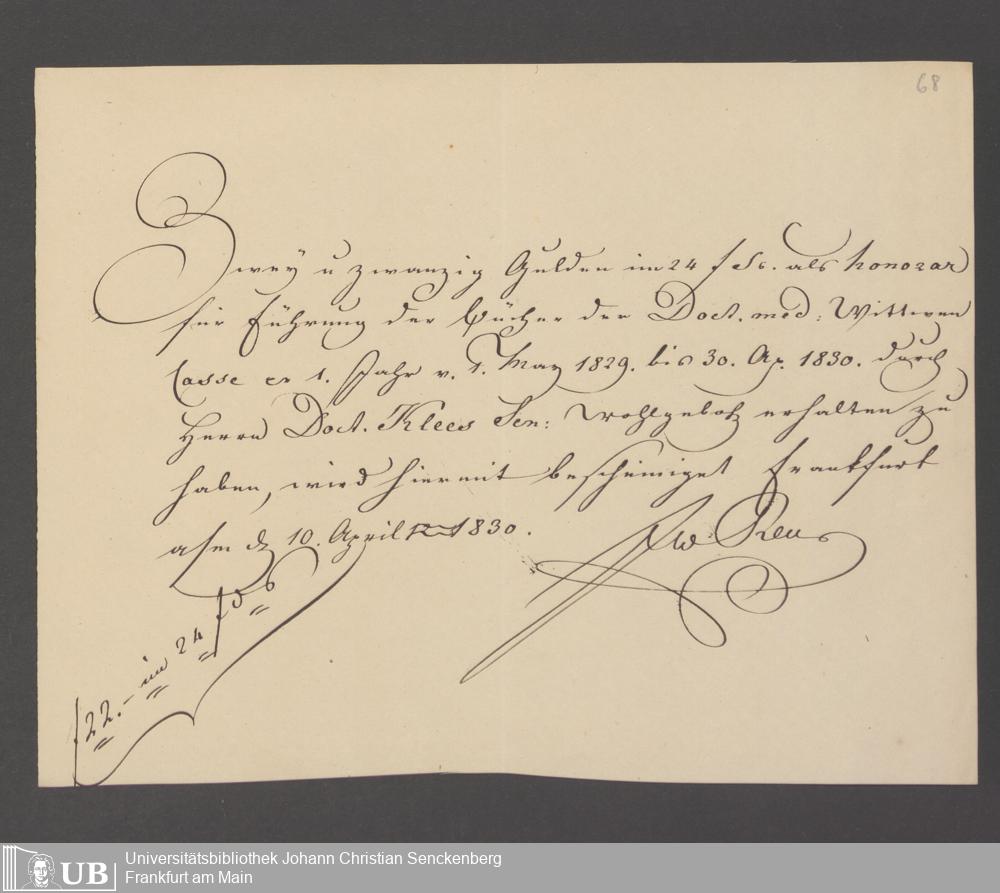 68
Zwey u zwanzig Gulden im 24 f Fs. als honorar
für Führung der Bücher der Doct. med: Wittwen
Casse er 1. Jahr v. 1. May 1829. bis 30. Ap. 1830. durch
Herrn Doct. Klees Sen: Wohlgeb. erhalten zu
haben, wird hiermit bescheiniget Frankfurt
a/m d 10. April 1830.
Reus
f 22.– im 24 f Fs
UB
Universitätsbibliothek Johann Christian Senckenberg
Frankfurt am Main